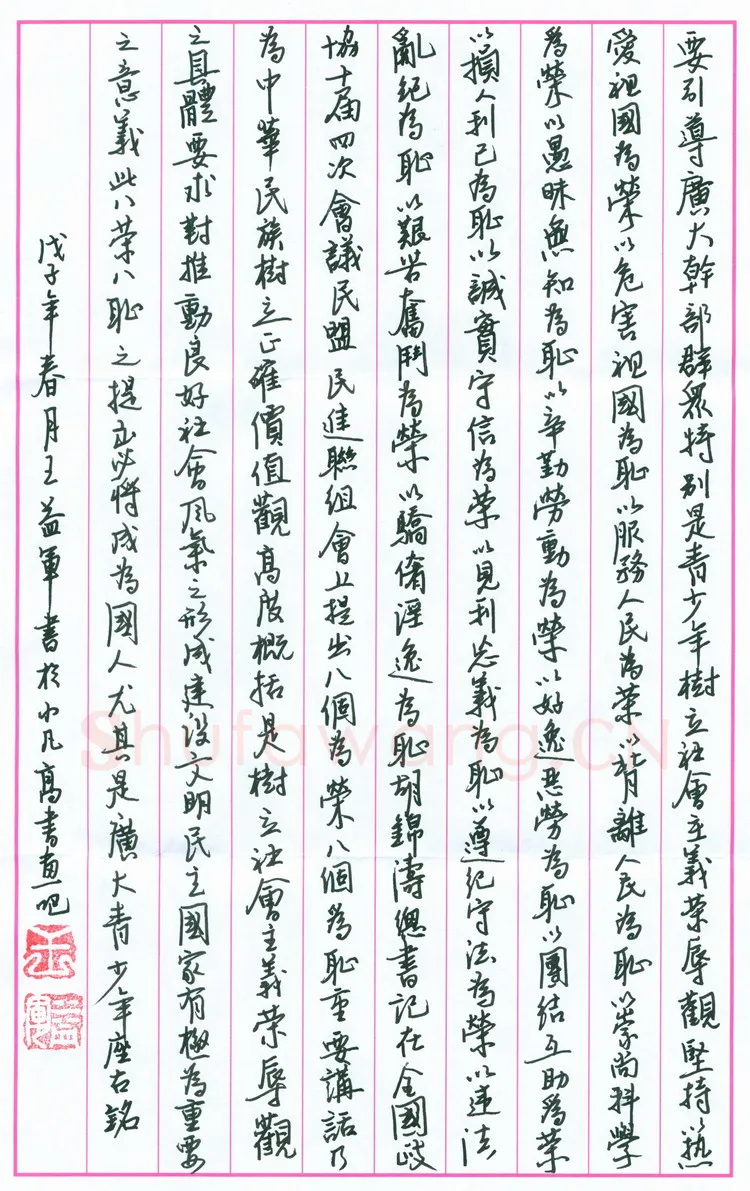 要引導廣大幹部群眾特別是青少年樹立社會主義榮辱觀堅持以熱
愛祖國為榮以危害祖國為恥以服務人民為榮以背離人民為恥以崇尚科學
為榮以愚昧無知為恥以辛勤勞動為榮以好逸惡勞為恥以團結互助為榮
以損人利己為恥以誠實守信為榮以見利忘義為恥以遵紀守法為榮以違法
亂紀為恥以艱苦奮鬥為榮以驕奢淫逸為恥胡錦濤總書記在全國政
協十屆四次會議民盟民進聯組會上提出八個為榮八個為恥重要講話乃
為中華民族樹立正確價值觀高度概括是樹立社會主義榮辱觀
之具體要求對推動良好社會風氣之形成建設文明民主國家有極為重要
之意義此八榮八恥之提出必將成為國人尤其是廣大青少年座右銘
戊子年春月王益軍書於小凡高書畫吧
王
益軍
Shufawang.CN